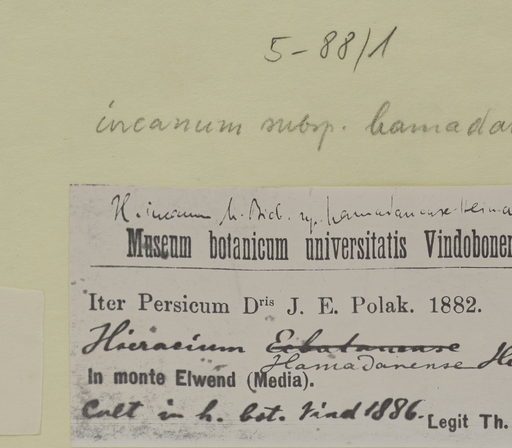 5-88/1
incanum subsp. hamadan
H. incanum M. Bieb. sp. hamadanense
Museum botanicum universitatis Vindobonen
Iter Persicum Dris J. E. Polak. 1882.
Hieracium Ecbatanense
Hamadanense
In monte Elwend (Media).
Cult in h. bot. Vind 1886. Legit Th.